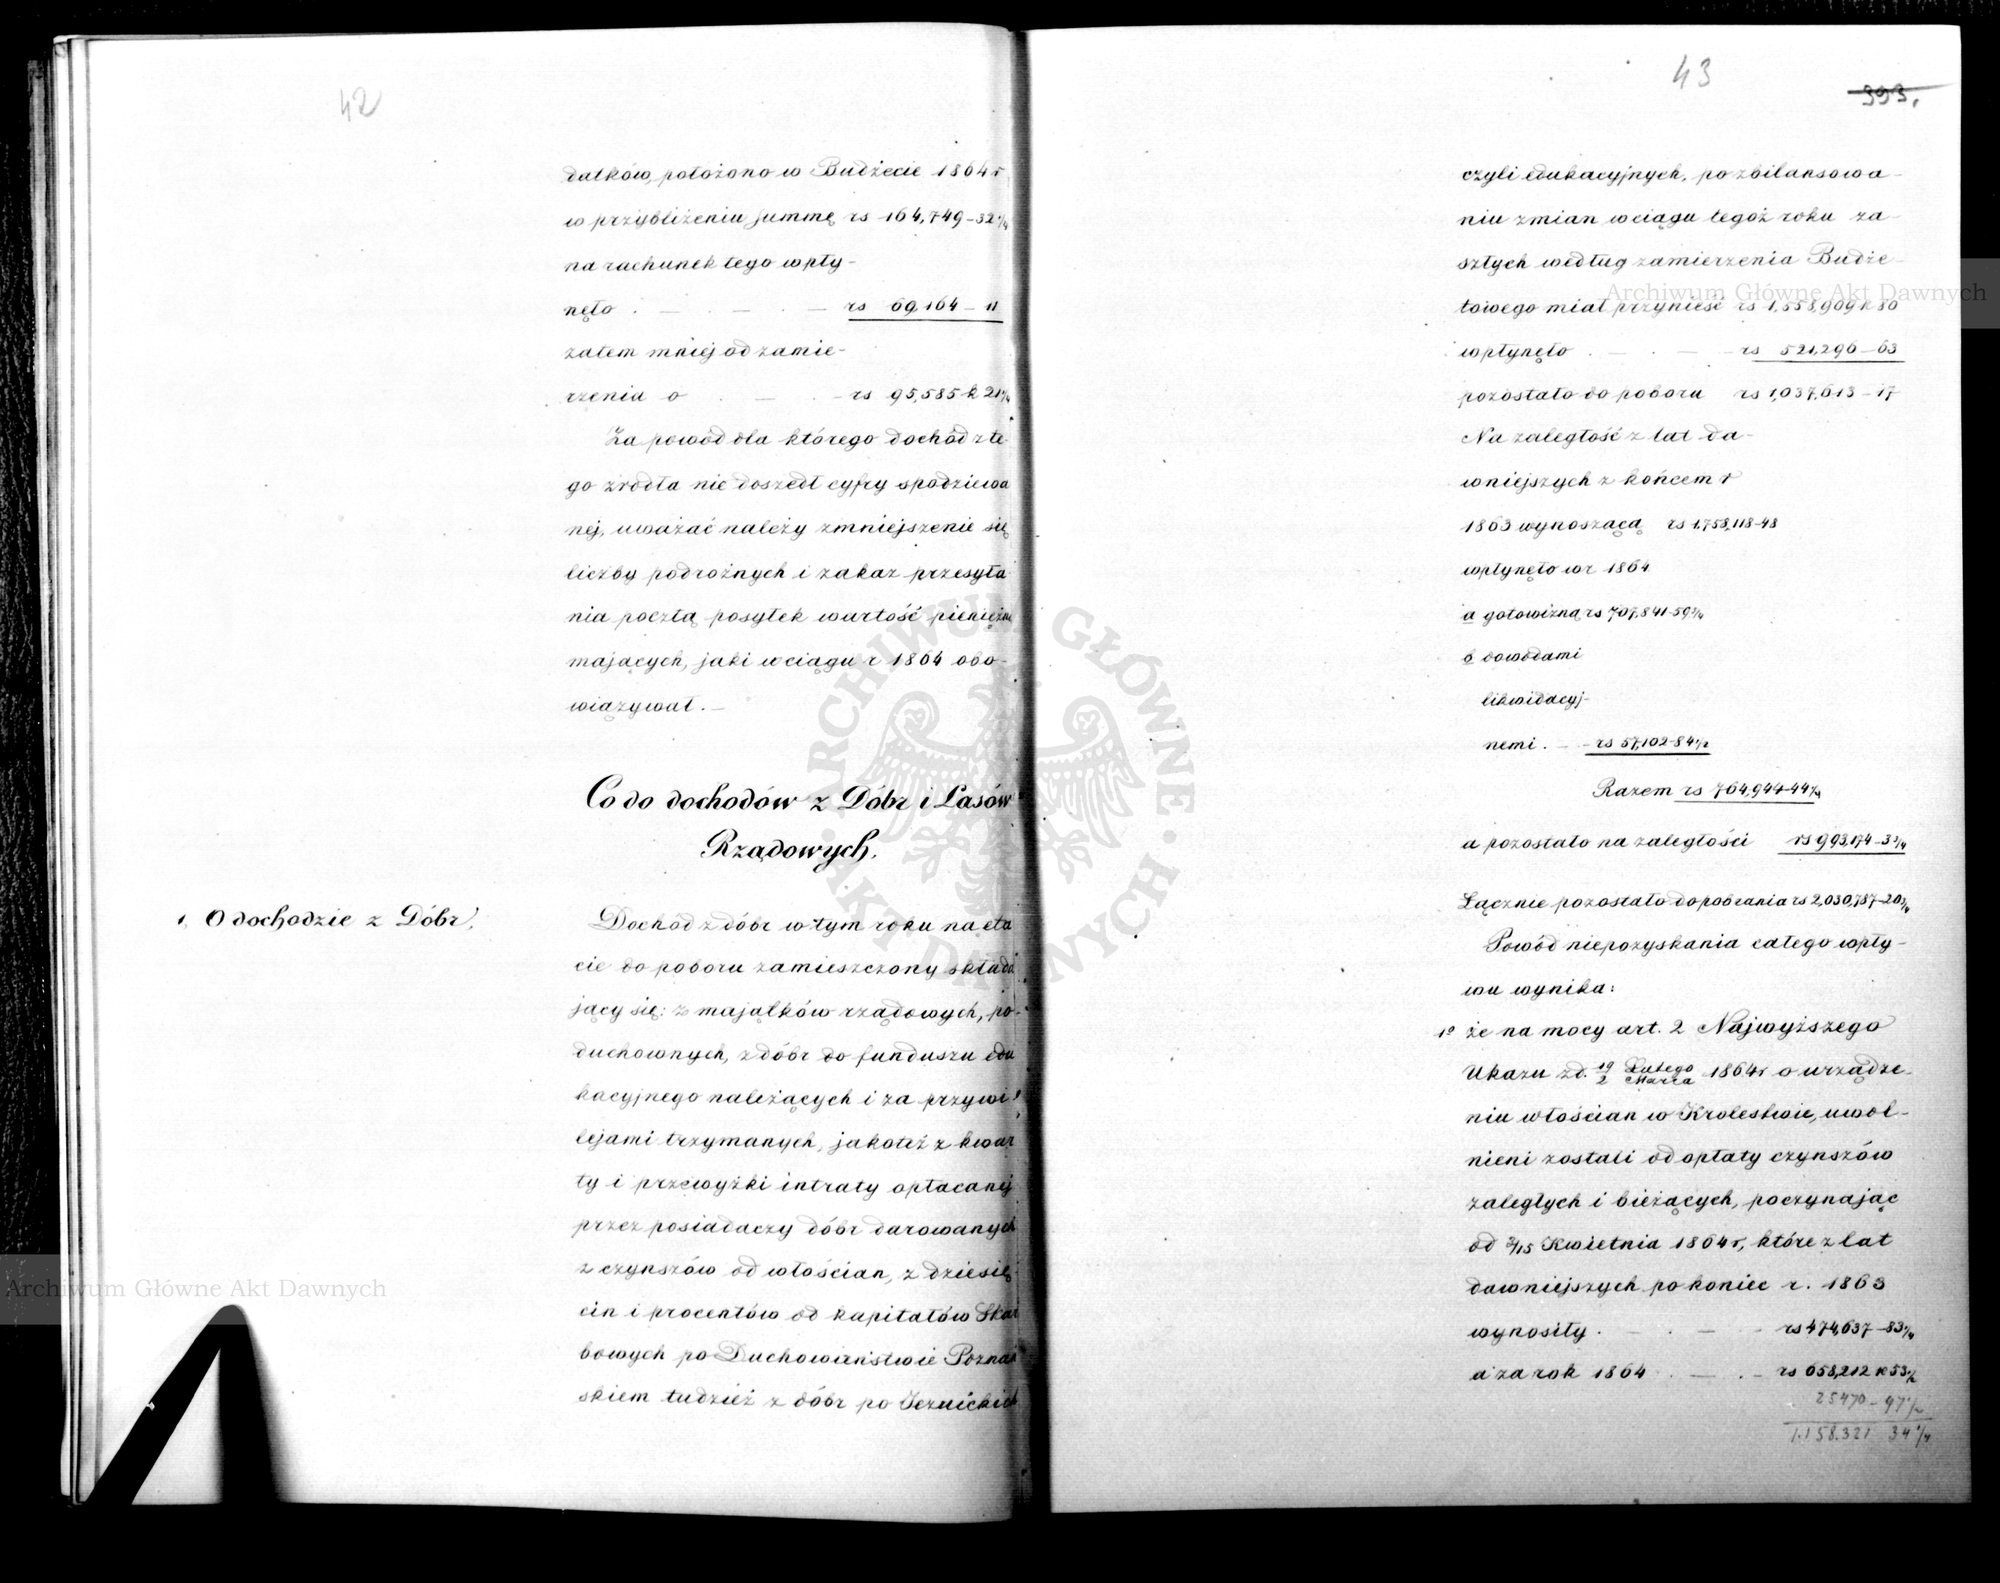 42
datków, położono w Budżecie 1864 r
w przybliżeniu summę rs 164,749-32 1/4
na rachunek tego wpły-
nęło . — . — . — rs 69,164 - 11
zatem mniej od zamie-
rzenia o . — . — rs 95,585 k 21 1/4
Za powód dla którego dochód z te-
go źródła nie doszedł cyfry spodziewa
nej, uważać należy zmniejszenie się
liczby podrożnych i zakaz przesyła
nia pocztą posyłek wartość pieniężną
mających, jaki w ciągu r 1864 obo-
wiązywał. —
Co do dochodów z Dóbr i Lasów
Rządowych.
1, O dochodzie z Dóbr,
Dochód z dóbr w tym roku na eta
cie do poboru zamieszczony składa
jący się: z majątków rządowych, po-
duchownych, z dóbr do funduszu edu
kacyjnego należących i za przywi-
lejami trzymanych, jakoteż z kwar
ty i przewyżki intraty opłacanej
przez posiadaczy dóbr darowanych
z czynszów od włościan, z dziesię-
cin i procentów od kapitałów Skar
bowych po Duchowieństwie Poznań
skiem tudzież z dóbr po Jezuickich
43
393.
czyli edukacyjnych, po zbilansowa-
niu zmian w ciągu tegoż roku za-
szłych według zamierzenia Budże-
towego miał przynieść rs 1,558,909 k 80
wpłynęło . — . — rs 521,296 - 63
pozostało do poboru rs 1,037,613 - 17
Na zaległość z lat da-
wniejszych z końcem r
1863 wynoszącą rs 1,758,118-48
wpłynęło w r 1864
a gotowizną rs 707,841-59 3/4
b dowodami
likwidacyj-
nemi . — rs 57,102-84 1/2
Razem rs 764,944-44 1/4
a pozostało na zaległości rs 993,174-3 3/4
Łącznie pozostało do pobrania rs 2,030,787-20 3/4
Powód niepozyskania całego wpły-
wu wynika:
1º że na mocy art. 2 Najwyższego
Ukazu z d. 19/2 Lutego/Marca 1864 r o urządze-
niu włościan w Krolestwie, uwol-
nieni zostali od opłaty czynszów
zaległych i bieżących, poczynając
od 3/15 Kwietnia 1864 r, które z lat
dawniejszych po koniec r. 1863
wynosiły . — . — . rs 474,637-83 1/4
a za rok 1864 . — . — rs 658,212 k 53 1/2
25470 - 97 1/2
1.158.321 34 1/4